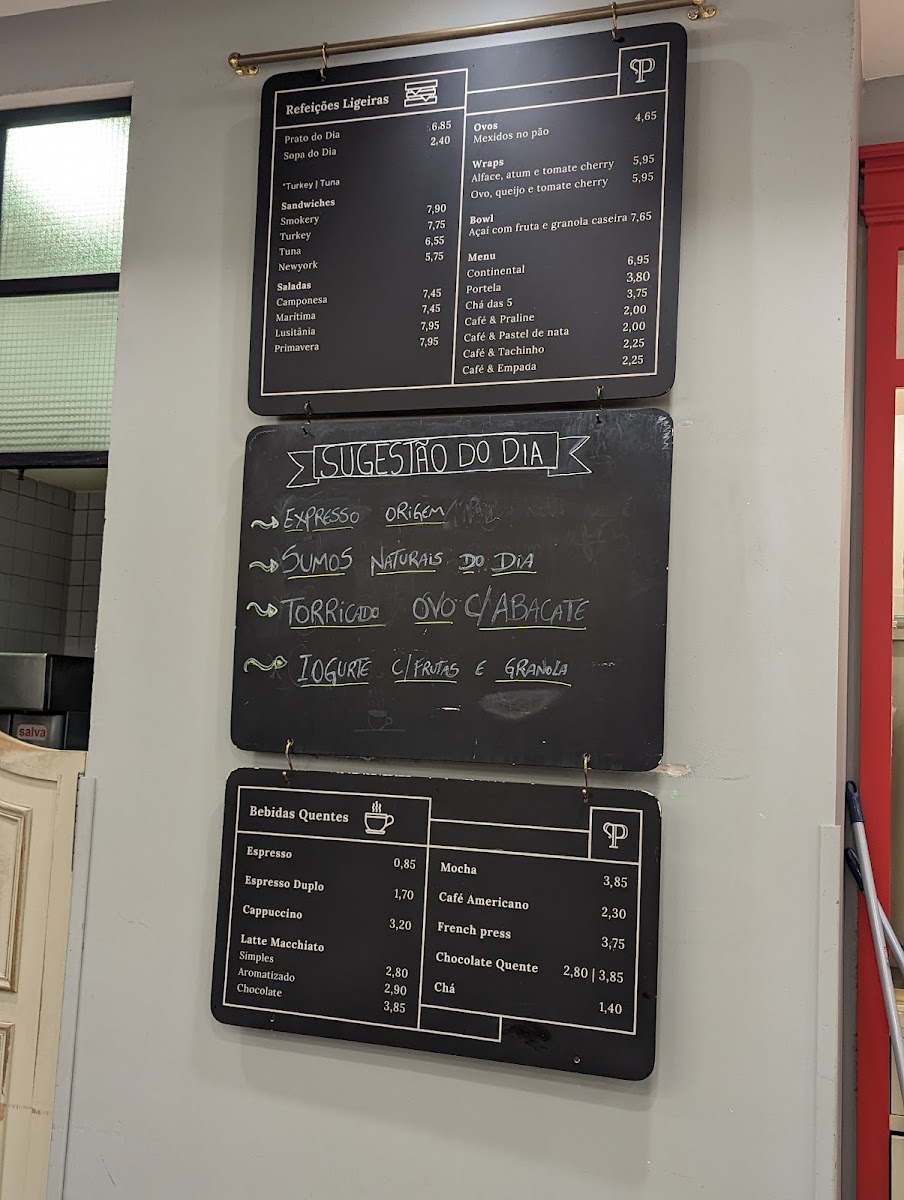 Refeições Ligeiras
Prato do Dia 6,85
Sopa do Dia 2,40
*Turkey | Tuna
Sandwiches
Smokery 7,90
Turkey 7,75
Tuna 6,55
Newyork 5,75
Saladas
Camponesa 7,45
Marítima 7,45
Lusitânia 7,95
Primavera 7,95
SP
Ovos
Mexidos no pão 4,65
Wraps
Alface, atum e tomate cherry 5,95
Ovo, queijo e tomate cherry 5,95
Bowl
Açaí com fruta e granola caseira 7,65
Menu
Continental 6,95
Portela 3,80
Chá das 5 3,75
Café & Praline 2,00
Café & Pastel de nata 2,00
Café & Tachinho 2,25
Café & Empada 2,25
SUGESTÃO DO DIA
EXPRESSO ORIGEM/
SUMOS NATURAIS DO DIA
TORRICADO OVO C/ABACATE
IOGURTE C/FRUTAS E GRANOLA
Bebidas Quentes
Espresso 0,85
Espresso Duplo 1,70
Cappuccino 3,20
Latte Macchiato
Simples 2,80
Aromatizado 2,90
Chocolate 3,85
SP
Mocha 3,85
Café Americano 2,30
French press 3,75
Chocolate Quente 2,80 | 3,85
Chá 1,40
salva